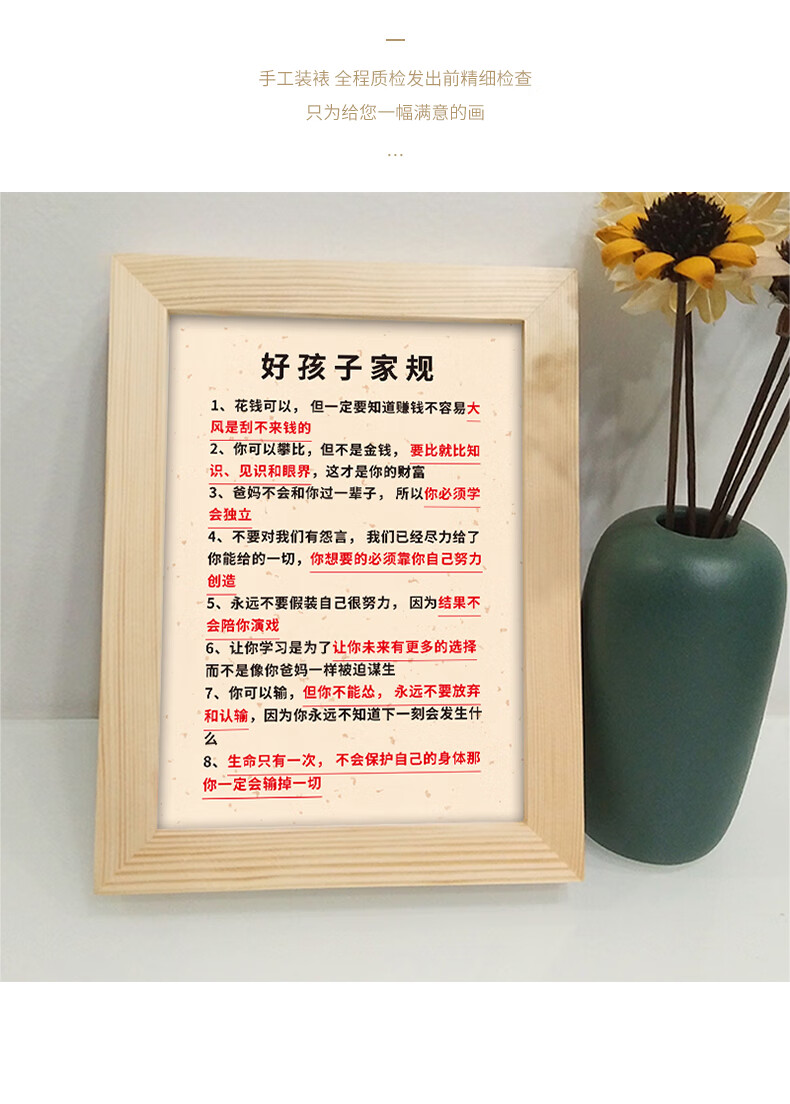 手工装裱 全程质检发出前精细检查
只为给您一幅满意的画
...
好孩子家规
1、花钱可以， 但一定要知道赚钱不容易大
风是刮不来钱的
2、你可以攀比，但不是金钱， 要比就比知
识、见识和眼界，这才是你的财富
3、爸妈不会和你过一辈子， 所以你必须学
会独立
4、不要对我们有怨言， 我们已经尽力给了
你能给的一切，你想要的必须靠你自己努力
创造
5、永远不要假装自己很努力， 因为结果不
会陪你演戏
6、让你学习是为了让你未来有更多的选择
而不是像你爸妈一样被迫谋生
7、你可以输，但你不能怂， 永远不要放弃
和认输，因为你永远不知道下一刻会发生什
么
8、生命只有一次， 不会保护自己的身体那
你一定会输掉一切